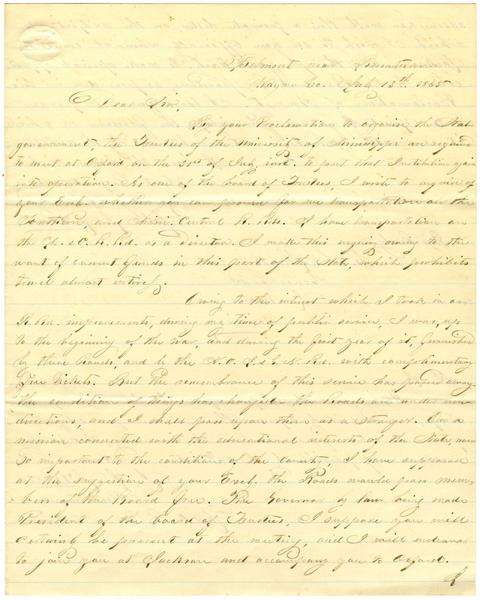 near
Wayne Co. July 13th 1865
Dear Sir,
In your Proclamation to organize the State
government, the Trustees of the University of Mississippi are required
to meet at Oxford on the 31st of July, inst. to put that Institution again
into operation. As one of the board of Trustees, I wish to inquire of
your Excly. whether you can procure for me transportation on the
Southern, and Missi. Central R. Rds. I have transportation on
the R. Rd. as a director. I make this inquiry owing to the
want of current funds in this part of the State, which prohibits
travel almost entirely.
Owing to the interest which I took in our
R. Rd. improvements, during my time of public service, I was, up
to the beginning of the war, and during the first year of it, furnished
by these Roads, and by the N.O. J. & G. N. Rd. with complimentary
Free tickets. But the remembrance of this service has passed away
the condition of things has changed - the Roads are under new
directions, and I shall pass upon them as a stranger. On a
mission connected with the educational interests of the State, now
so important to the condition of the Country, I have supposed
at the suggestion of your Excly. the Roads would pass mem-
bers of the Board free. The Governor by law being made
President of the board of Trustees, I suppose you will
certainly be present at the meeting, and I will endeavor
to join you at Jackson and accompany you to Oxford.